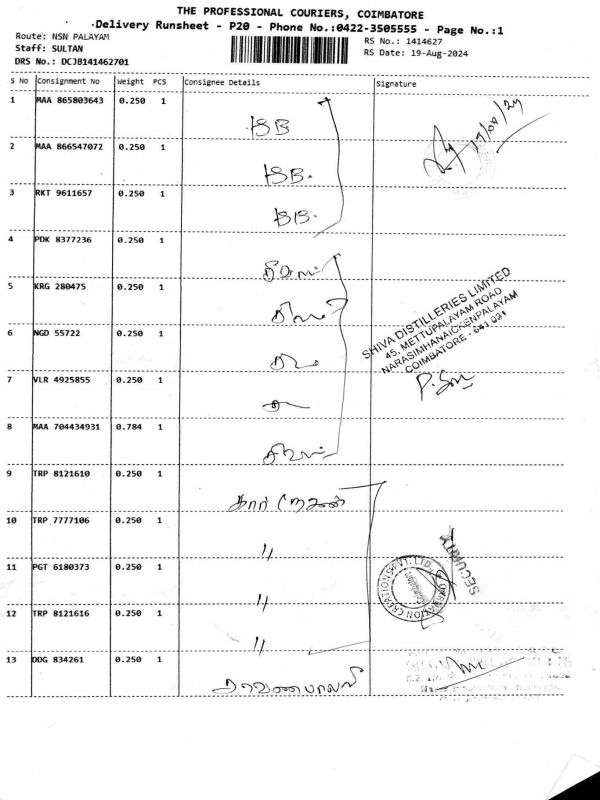 THE PROFESSIONAL COURIERS, COIMBATORE
Delivery Runsheet - P20 - Phone No.:0422-3505555 - Page No.:1
Route: NSN PALAYAM
Staff: SULTAN
DRS No.: DCJB141462701
RS No.: 1414627
RS Date: 19-Aug-2024
S No Consignment No Weight PCS Consignee Details Signature
1 MAA 865803643 0.250 1 ISB
19/08/24
2 MAA 866547072 0.250 1 ISB.
3 RKT 9611657 0.250 1 ISB.
4 PDK 8377236 0.250 1
5 KRG 280475 0.250 1
6 NGD 55722 0.250 1
SHIVA DISTILLERIES LIMITED
45, METTUPALAYAM ROAD
NARASIMHANAICKENPALAYAM
COIMBATORE - 641 031
7 VLR 4925855 0.250 1
8 MAA 704434931 0.784 1
9 TRP 8121610 0.250 1
10 TRP 7777106 0.250 1 "
SECURITY
11 PGT 6180373 0.250 1 "
12 TRP 8121616 0.250 1 "
13 DDG 834261 0.250 1